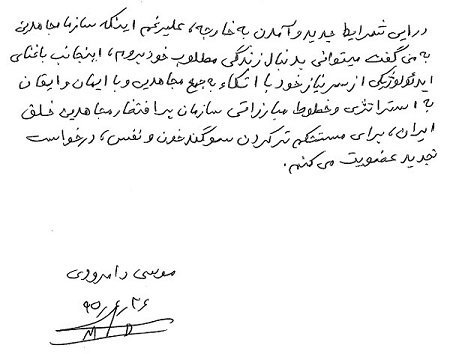 در این شرایط جدید و آمدن به خارجه، علیرغم اینکه سازمان مجاهدین
به من گفت میتوانی بدنبال زندگی مطلوب خود بروم، اینجانب با غنای
ایدئولوژیکی از سر نیاز خود با اتکاء به جمع مجاهدین و با ایمان و ایقان
به استراتژی و خطوط مبارزاتی سازمان پرافتخار مجاهدین خلق
ایران، برای مستحکم تر کردن سوگند خون و نفس، درخواست
تجدید عضویت می کنم.
موسی دامرودی
۹۵،۶،۲۶
M D